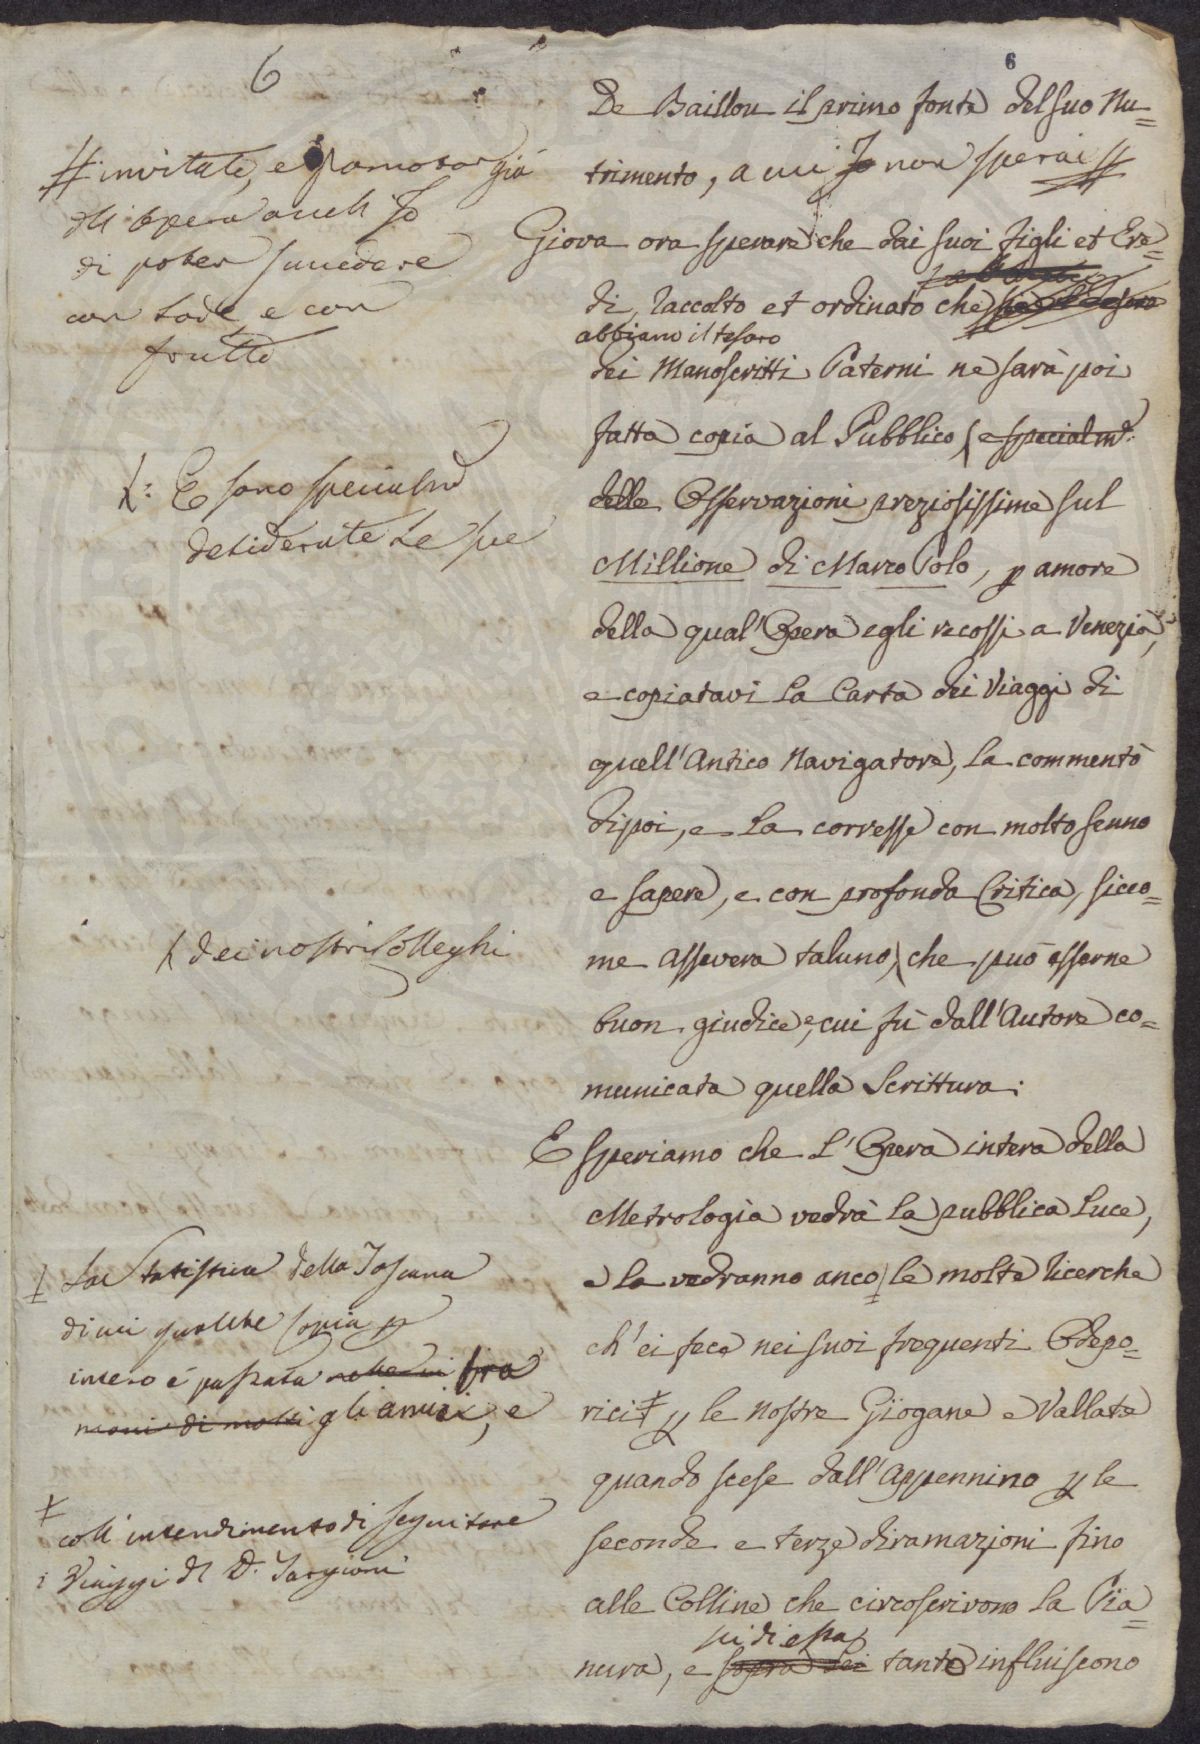 6
6
De Baillou il primo fonte del suo Nu=
trimento, a cui Io non sperai #
Giova ora sperare che dai suoi figli et Ere=
di, raccolto et ordinato che
abbiamo il tesoro
dei Manoscritti Paterni ne sarà poi
fatta copia al Pubblico, e specialmte.
delle Osservazioni preziosissime sul
Millione di Marco Polo, p amore
della qual' Opera egli recossi a Venezia,
e copiatavi la Carta dei Viaggi di
quell'Antico Navigatore, la commentò
dipoi, e la corresse con molto senno
e sapere, e con profonda Critica, sicco=
me assevera taluno, che può esserne
buon giudice, e cui fù dall'Autore co=
municata quella Scrittura:
E speriamo che l'Opera intera della
Metrologia vedrà la pubblica luce,
e la vedranno anco le molte ricerche
ch'ei fece nei suoi frequenti Odepo=
rici ‡ p le nostre Giogane e Vallate
quando scese dall'Appennino p le
seconde e terze diramazioni fino
alle Colline che circoscrivono la Pia=
sui di essa
nura, e sopra dei tanto influiscono
# invitate, e già
dell'opera anch'Io
di poter succedere
con lode, e con
frutto
X: E sono specialmte
desiderate le sue
X dei nostri Colleghi
‡ La Statistica della Toscana
di cui qualche copia p
intero é passata fra
mani di molti gli amici, e
‡ coll'intendimento di seguitare
i Viaggi del D. Targioni